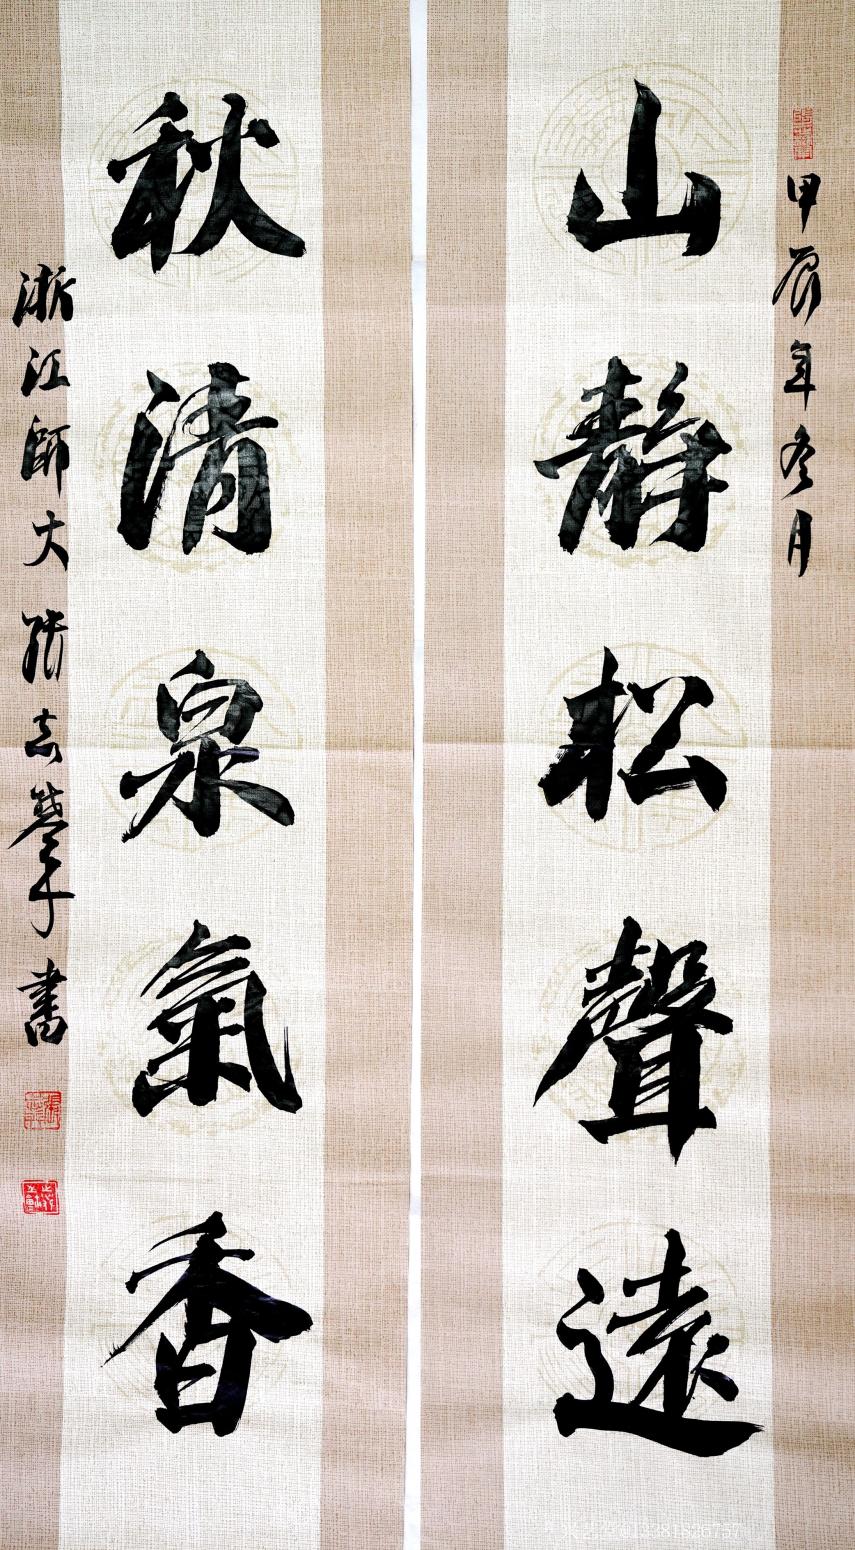 甲辰年冬月
山静松聲遠
秋清泉氣香
浙江師大
書